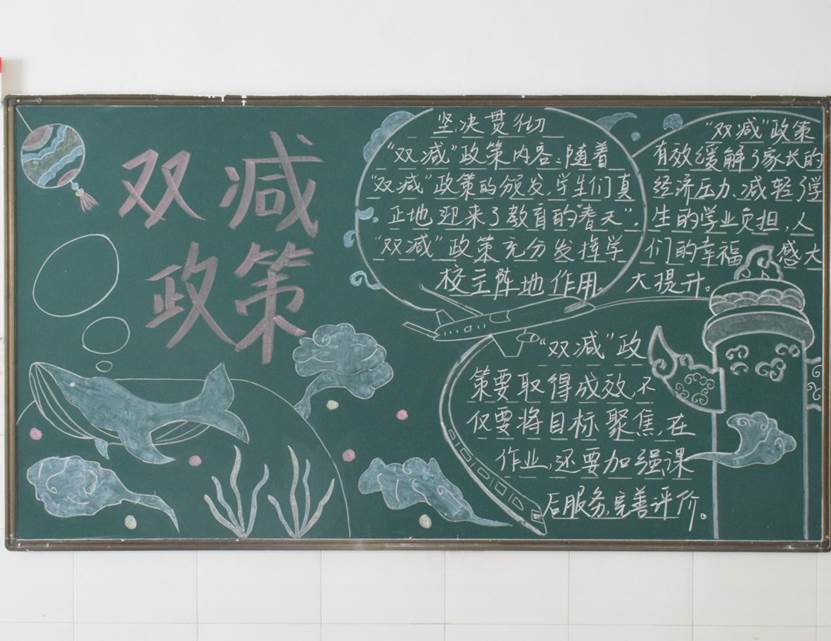 双减
政策
坚决贯彻
“双减”政策内容：随着
“双减”政策的颁发，学生们真
正地迎来了教育的“春天”。
“双减”政策充分发挥学
校主阵地作用。
“双减”政策
有效缓解了家长的
经济压力，减轻了学
生的学业负担，人
们的幸福感大
大提升。
“双减”政
策要取得成效，不
仅要将目标聚焦在
作业，还要加强课
后服务，完善评价。